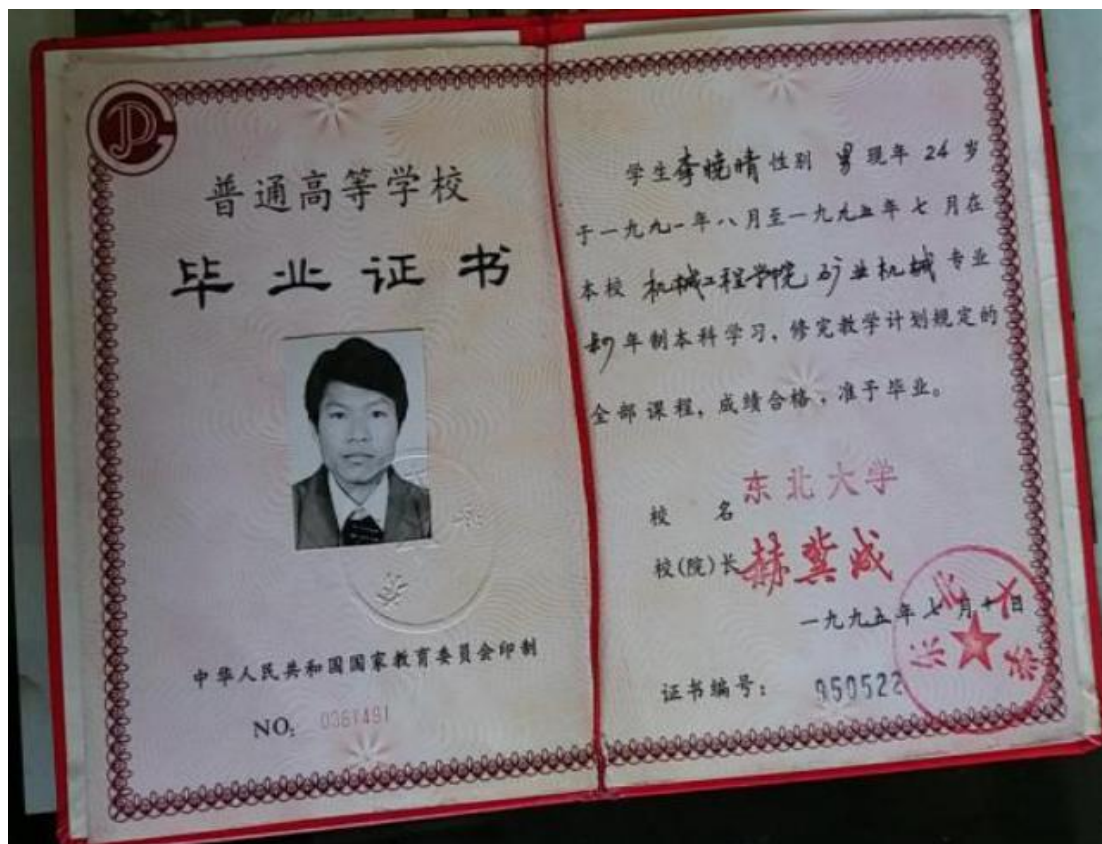 普通高等学校
毕业证书
中华人民共和国国家教育委员会印制
NO: 0361491
学生李晓晴性别 男 现年 24 岁
于一九九一年八月至一九九五年七月在
本校 机械工程学院 矿业机械 专业
四年制本科学习,修完教学计划规定的
全部课程,成绩合格,准予毕业。
校 名 东北大学
校(院)长 赫冀成
一九九五年七月十日
证书编号: 950522